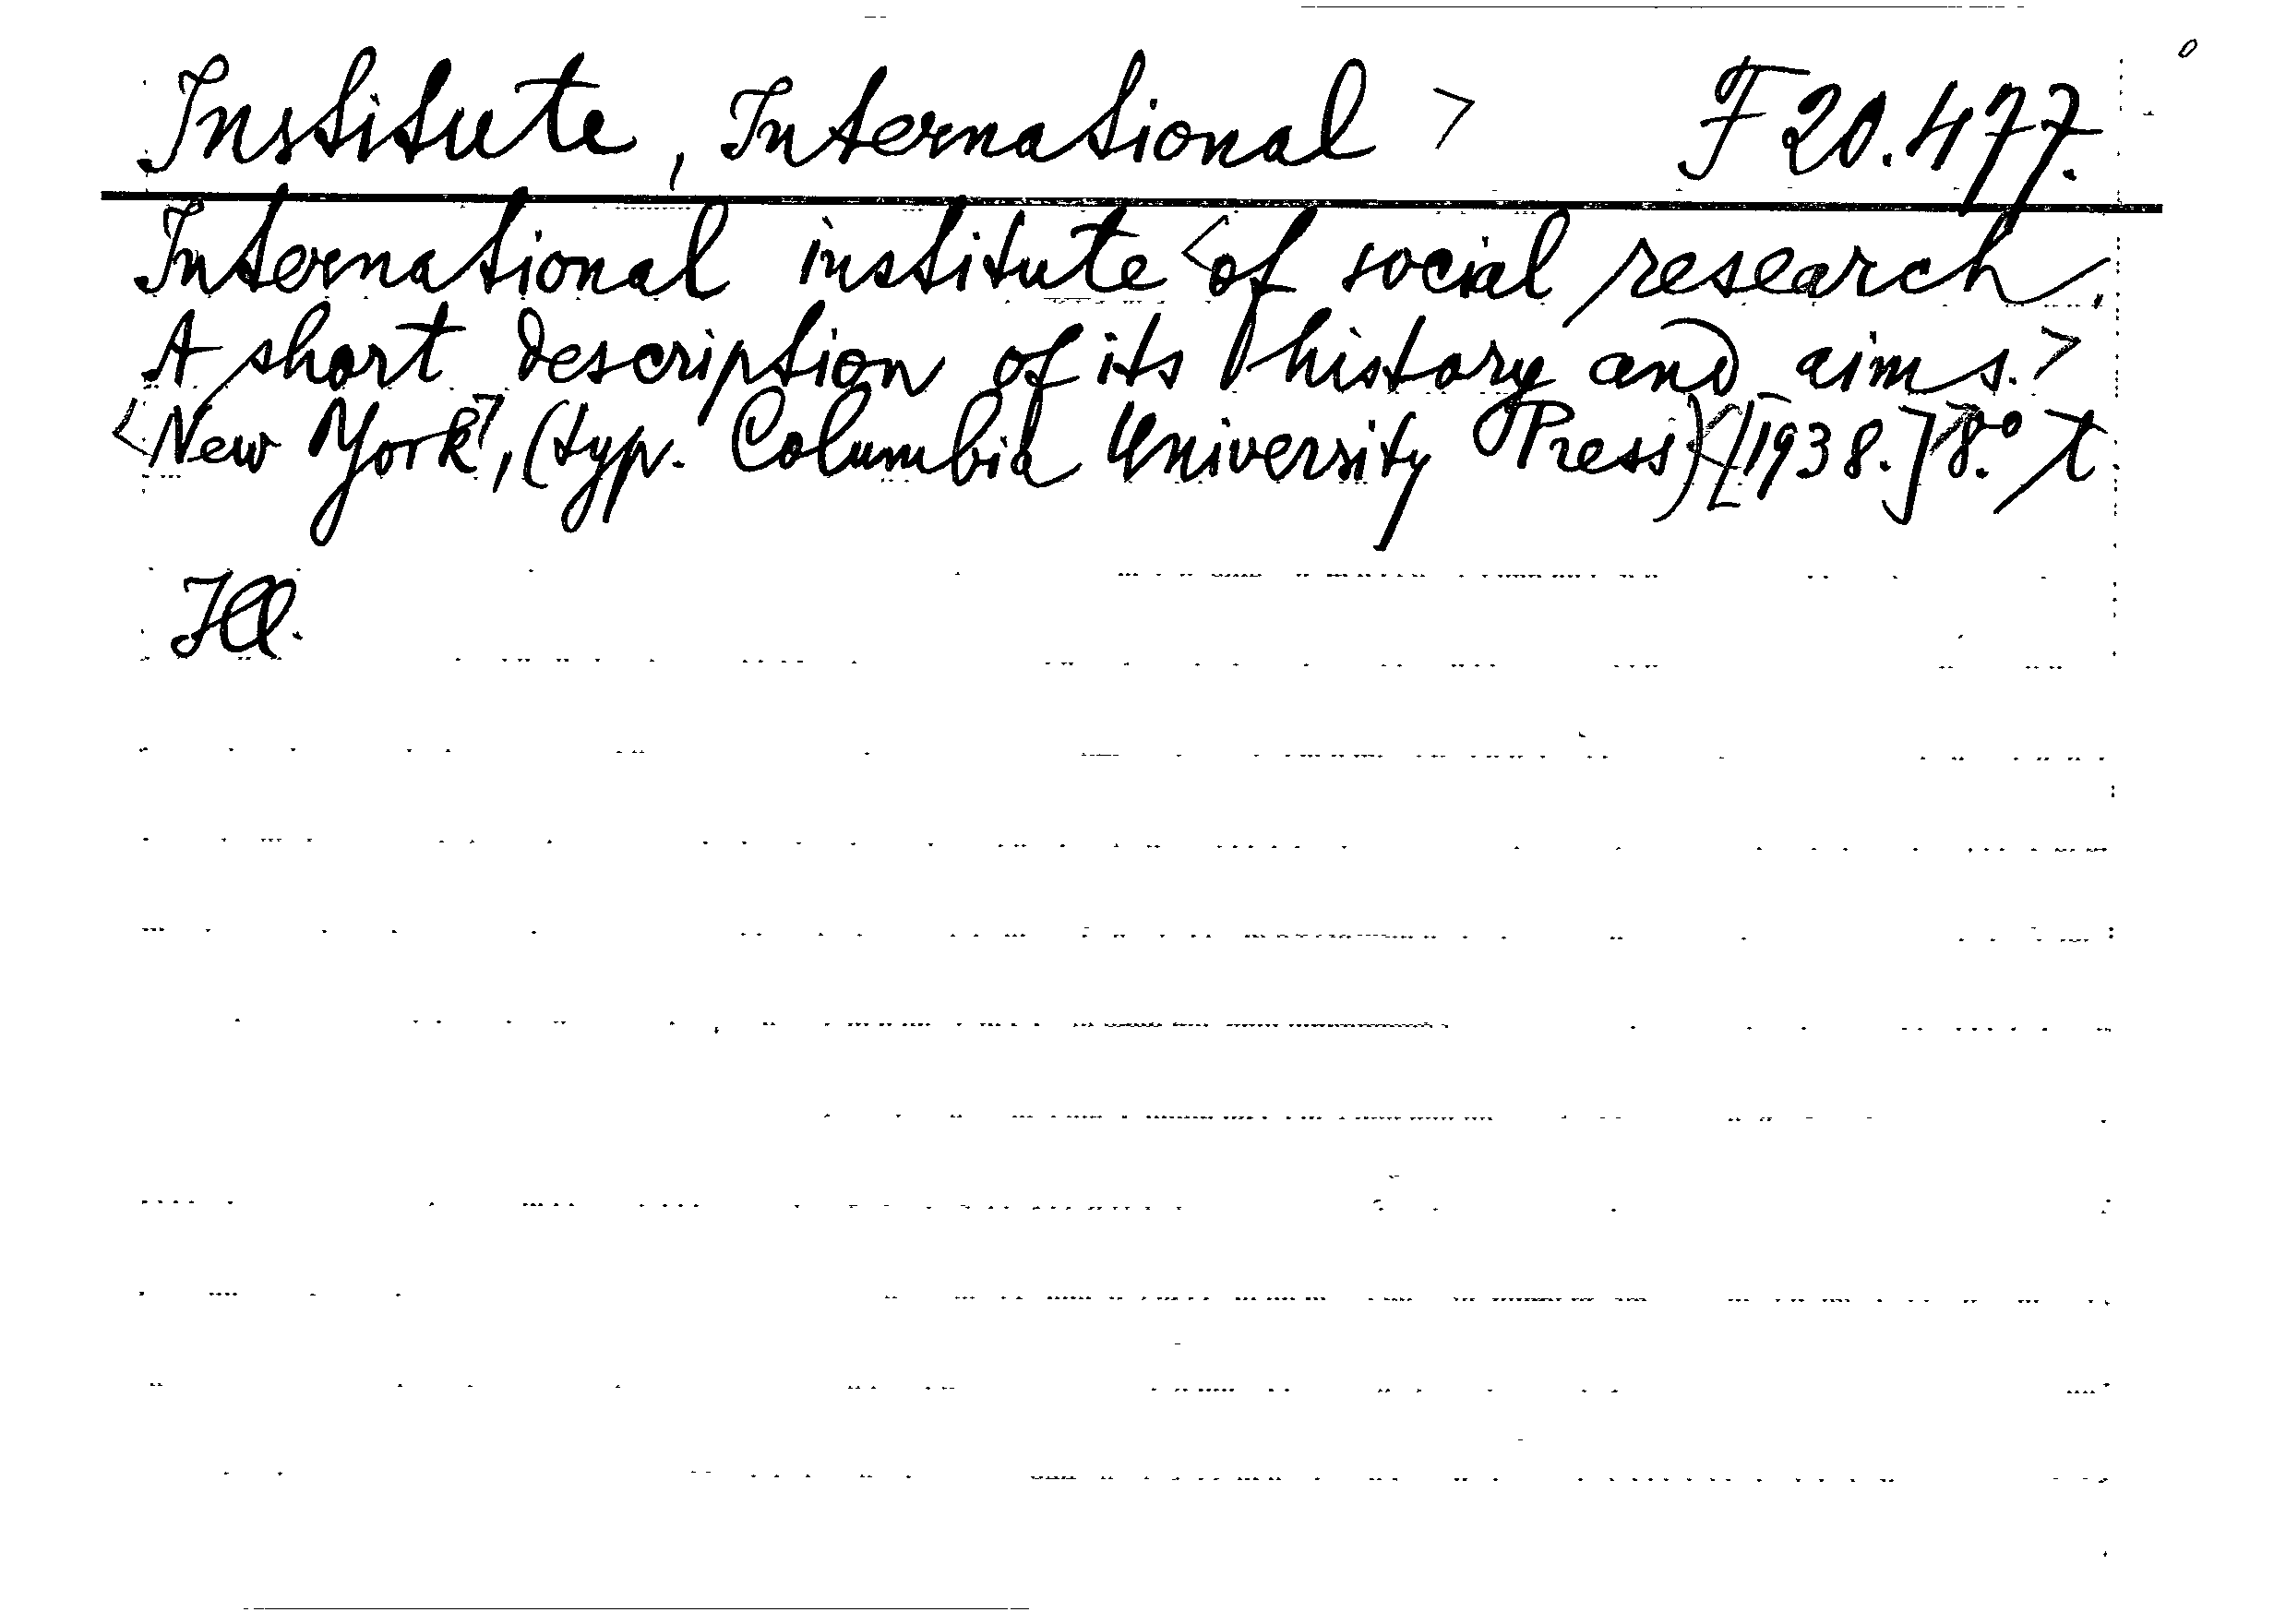 Institute, International > F 20.477.
International institute <of social research.
A short description of its history and aims.>
<New York>, (typ. Columbia University Press) <[1938.]> 8.° t